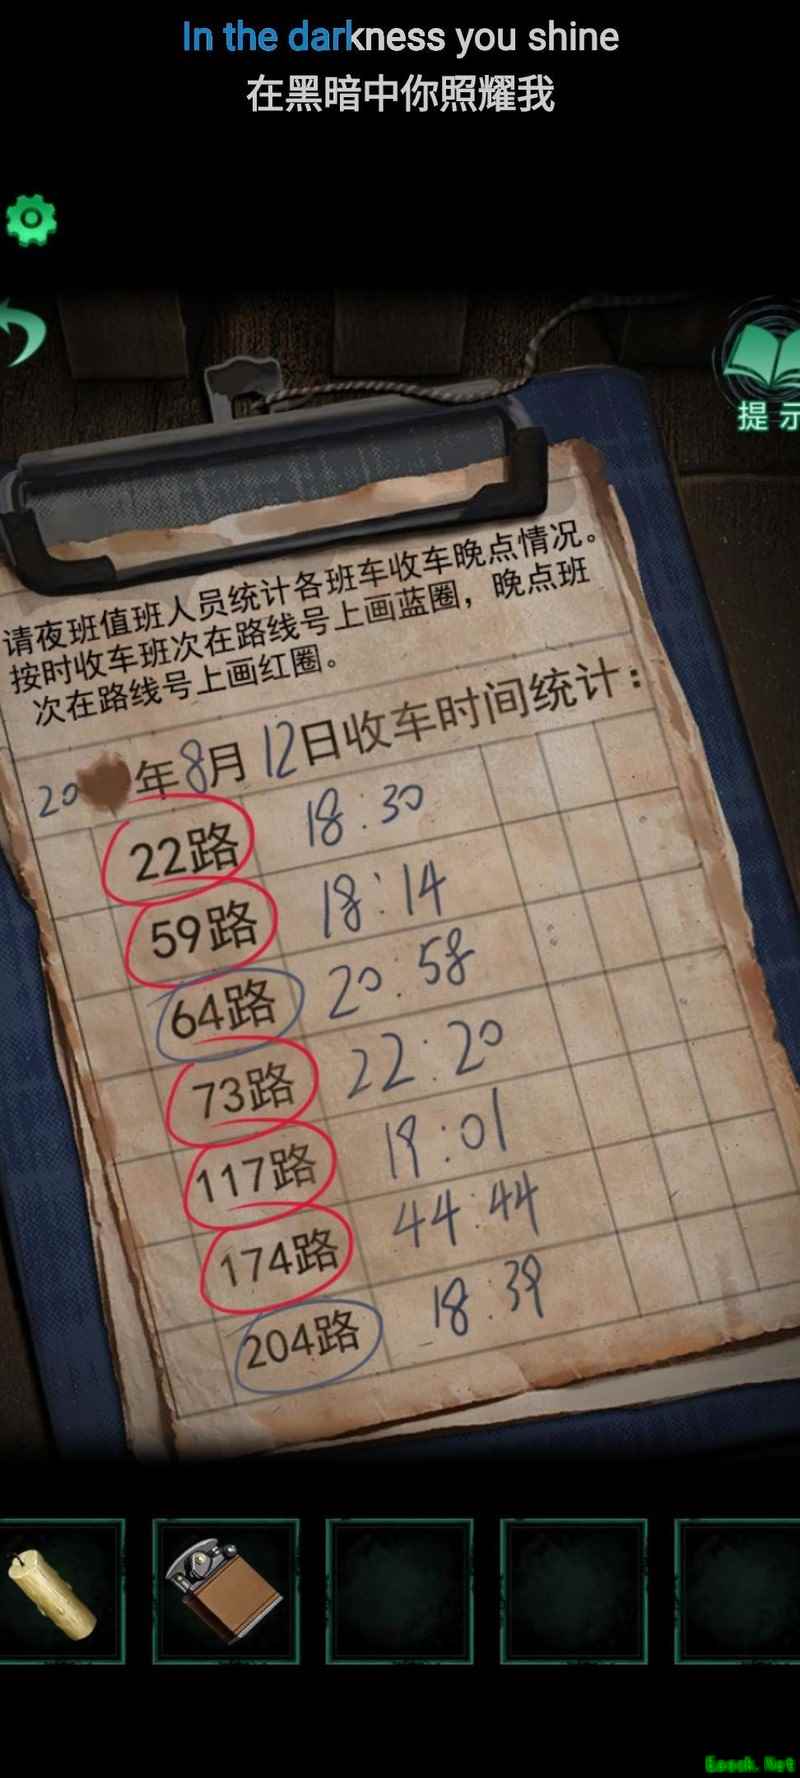 In the darkness you shine
在黑暗中你照耀我
提示
请夜班值班人员统计各班车收车晚点情况。
按时收车班次在路线号上画蓝圈，晚点班
次在路线号上画红圈。
20 年8月12日收车时间统计：
22路 18:30
59路 18:14
64路 20:58
73路 22:20
117路 19:01
174路 44:44
204路 18:39
Eoock.Net